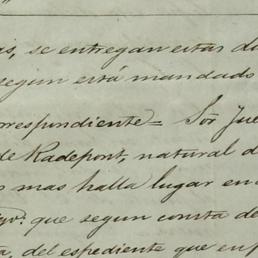 se entregan estas
segun está mandado
rrespondiente = Sor Jue
de Radepont, natural d
mas halla lugar en
que segun consta de
del espediente que